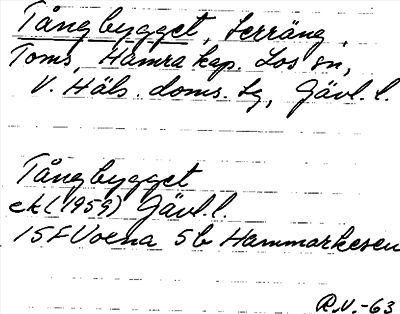 Tångbygget, terräng,
Toms, Hamra kap. Los sn,
V. Häls. doms. sg, Gävl. l.
Tångbygget
ek (1959) Gävl. l.
15F Voxna 5b Hammarkesen
R.V.-63